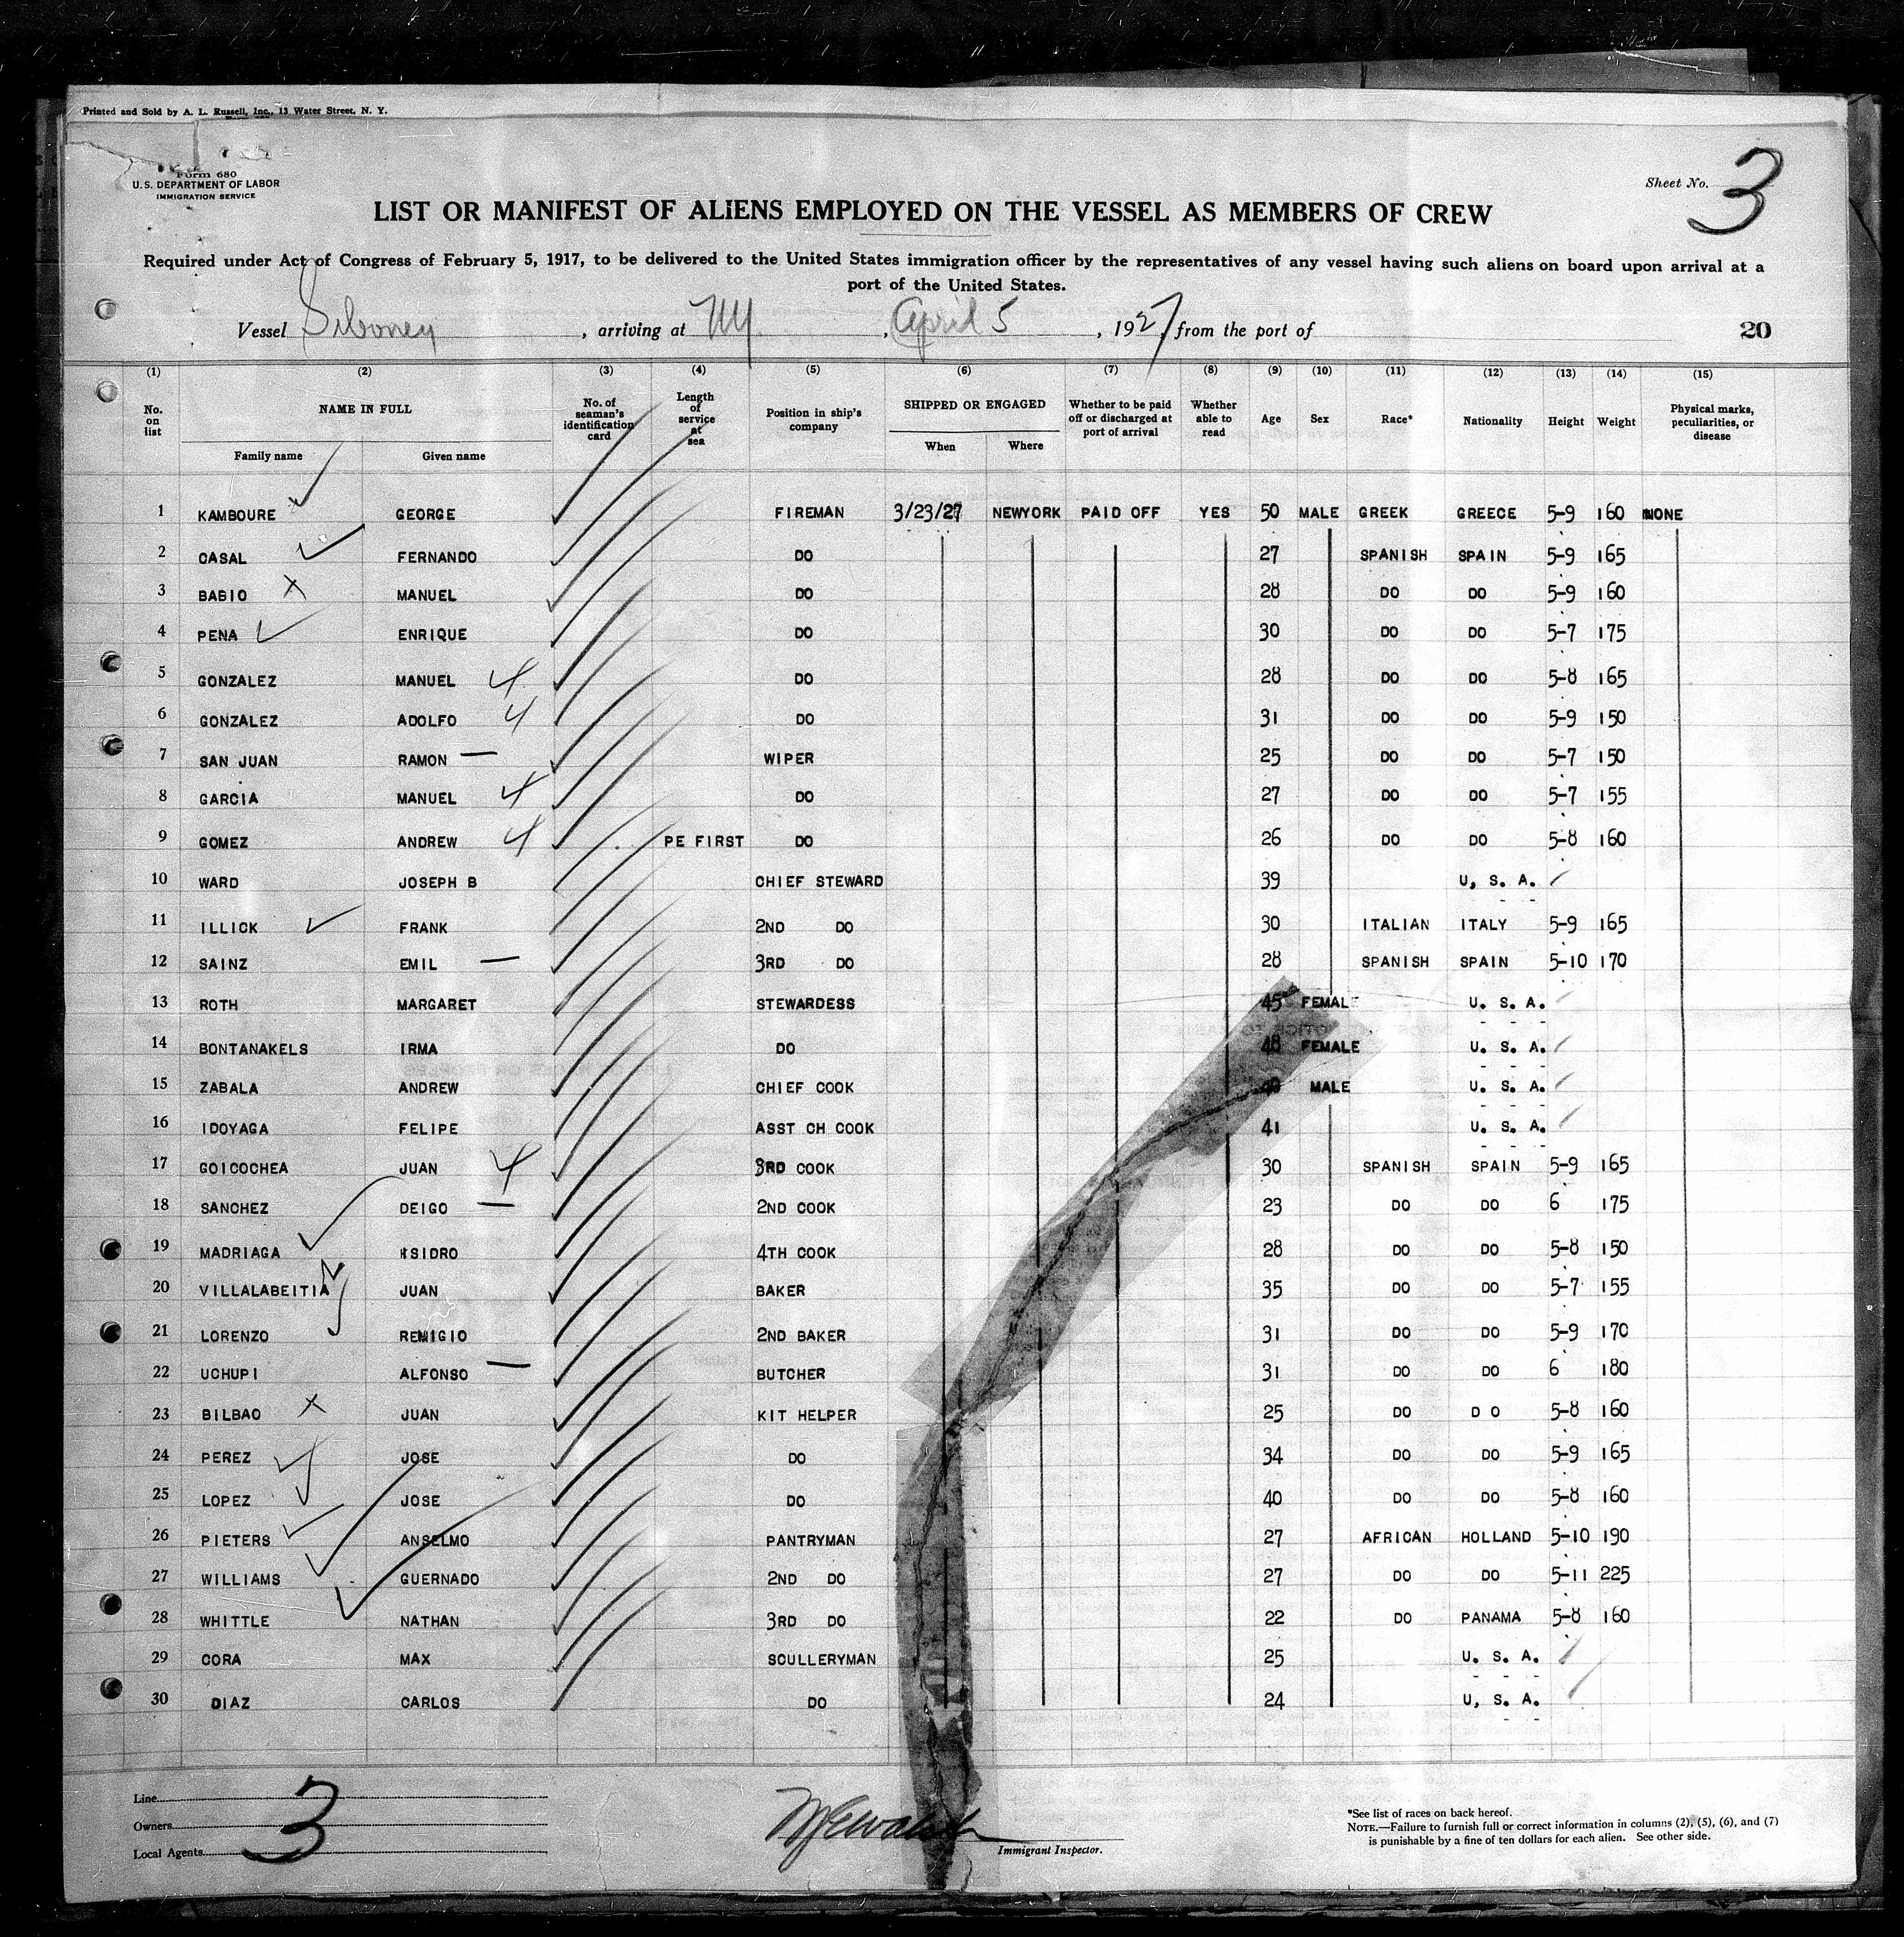 Printed and Sold by A. L. Russell, Inc., 13 Water Street, N. Y.
Form 680
U. S. DEPARTMENT OF LABOR
IMMIGRATION SERVICE
Sheet No. 3
LIST OR MANIFEST OF ALIENS EMPLOYED ON THE VESSEL AS MEMBERS OF CREW
Required under Act of Congress of February 5, 1917, to be delivered to the United States immigration officer by the representatives of any vessel having such aliens on board upon arrival at a
port of the United States.
Vessel Siboney, arriving at NY, April 5, 1927, from the port of 20
(1) (2) (3) (4) (5) (6) (7) (8) (9) (10) (11) (12) (13) (14) (15)
No. on list NAME IN FULL Family name Given name No. of seaman's identification card Length of service at sea Position in ship's company SHIPPED OR ENGAGED When Where Whether to be paid off or discharged at port of arrival Whether able to read Age Sex Race* Nationality Height Weight Physical marks, peculiarities, or disease
1 KAMBOURE GEORGE FIREMAN 3/23/27 NEWYORK PAID OFF YES 50 MALE GREEK GREECE 5-9 160 NONE
2 CASAL FERNANDO DO 27 SPANISH SPAIN 5-9 165
3 BABIO MANUEL DO 28 DO DO 5-9 160
4 PENA ENRIQUE DO 30 DO DO 5-7 175
5 GONZALEZ MANUEL 4 DO 28 DO DO 5-8 165
6 GONZALEZ ADOLFO 4 DO 31 DO DO 5-9 150
7 SAN JUAN RAMON — WIPER 25 DO DO 5-7 150
8 GARCIA MANUEL 4 DO 27 DO DO 5-7 155
9 GOMEZ ANDREW 4 PE FIRST DO 26 DO DO 5-8 160
10 WARD JOSEPH B CHIEF STEWARD 39 U, S. A.
11 ILLICK FRANK 2ND DO 30 ITALIAN ITALY 5-9 165
12 SAINZ EMIL — 3RD DO 28 SPANISH SPAIN 5-10 170
13 ROTH MARGARET STEWARDESS 45 FEMALE U. S. A.
14 BONTANAKELS IRMA DO 48 FEMALE U. S. A.
15 ZABALA ANDREW CHIEF COOK 40 MALE U. S. A.
16 IDOYAGA FELIPE ASST CH COOK 41 U. S. A.
17 GOICOCHEA JUAN 4 3RD COOK 30 SPANISH SPAIN 5-9 165
18 SANCHEZ DEIGO — 2ND COOK 23 DO DO 6 175
19 MADRIAGA ISIDRO 4TH COOK 28 DO DO 5-8 150
20 VILLALABEITIA JUAN BAKER 35 DO DO 5-7 155
21 LORENZO REMIGIO 2ND BAKER 31 DO DO 5-9 170
22 UCHUPI ALFONSO — BUTCHER 31 DO DO 6 180
23 BILBAO JUAN KIT HELPER 25 DO D O 5-8 160
24 PEREZ JOSE DO 34 DO DO 5-9 165
25 LOPEZ JOSE DO 40 DO DO 5-8 160
26 PIETERS ANSELMO PANTRYMAN 27 AFRICAN HOLLAND 5-10 190
27 WILLIAMS GUERNADO 2ND DO 27 DO DO 5-11 225
28 WHITTLE NATHAN 3RD DO 22 DO PANAMA 5-8 160
29 CORA MAX SCULLERYMAN 25 U. S. A.
30 DIAZ CARLOS DO 24 U, S. A.
Line
Owners
Local Agents
3
Immigrant Inspector.
*See list of races on back hereof.
NOTE.—Failure to furnish full or correct information in columns (2), (5), (6), and (7)
is punishable by a fine of ten dollars for each alien. See other side.